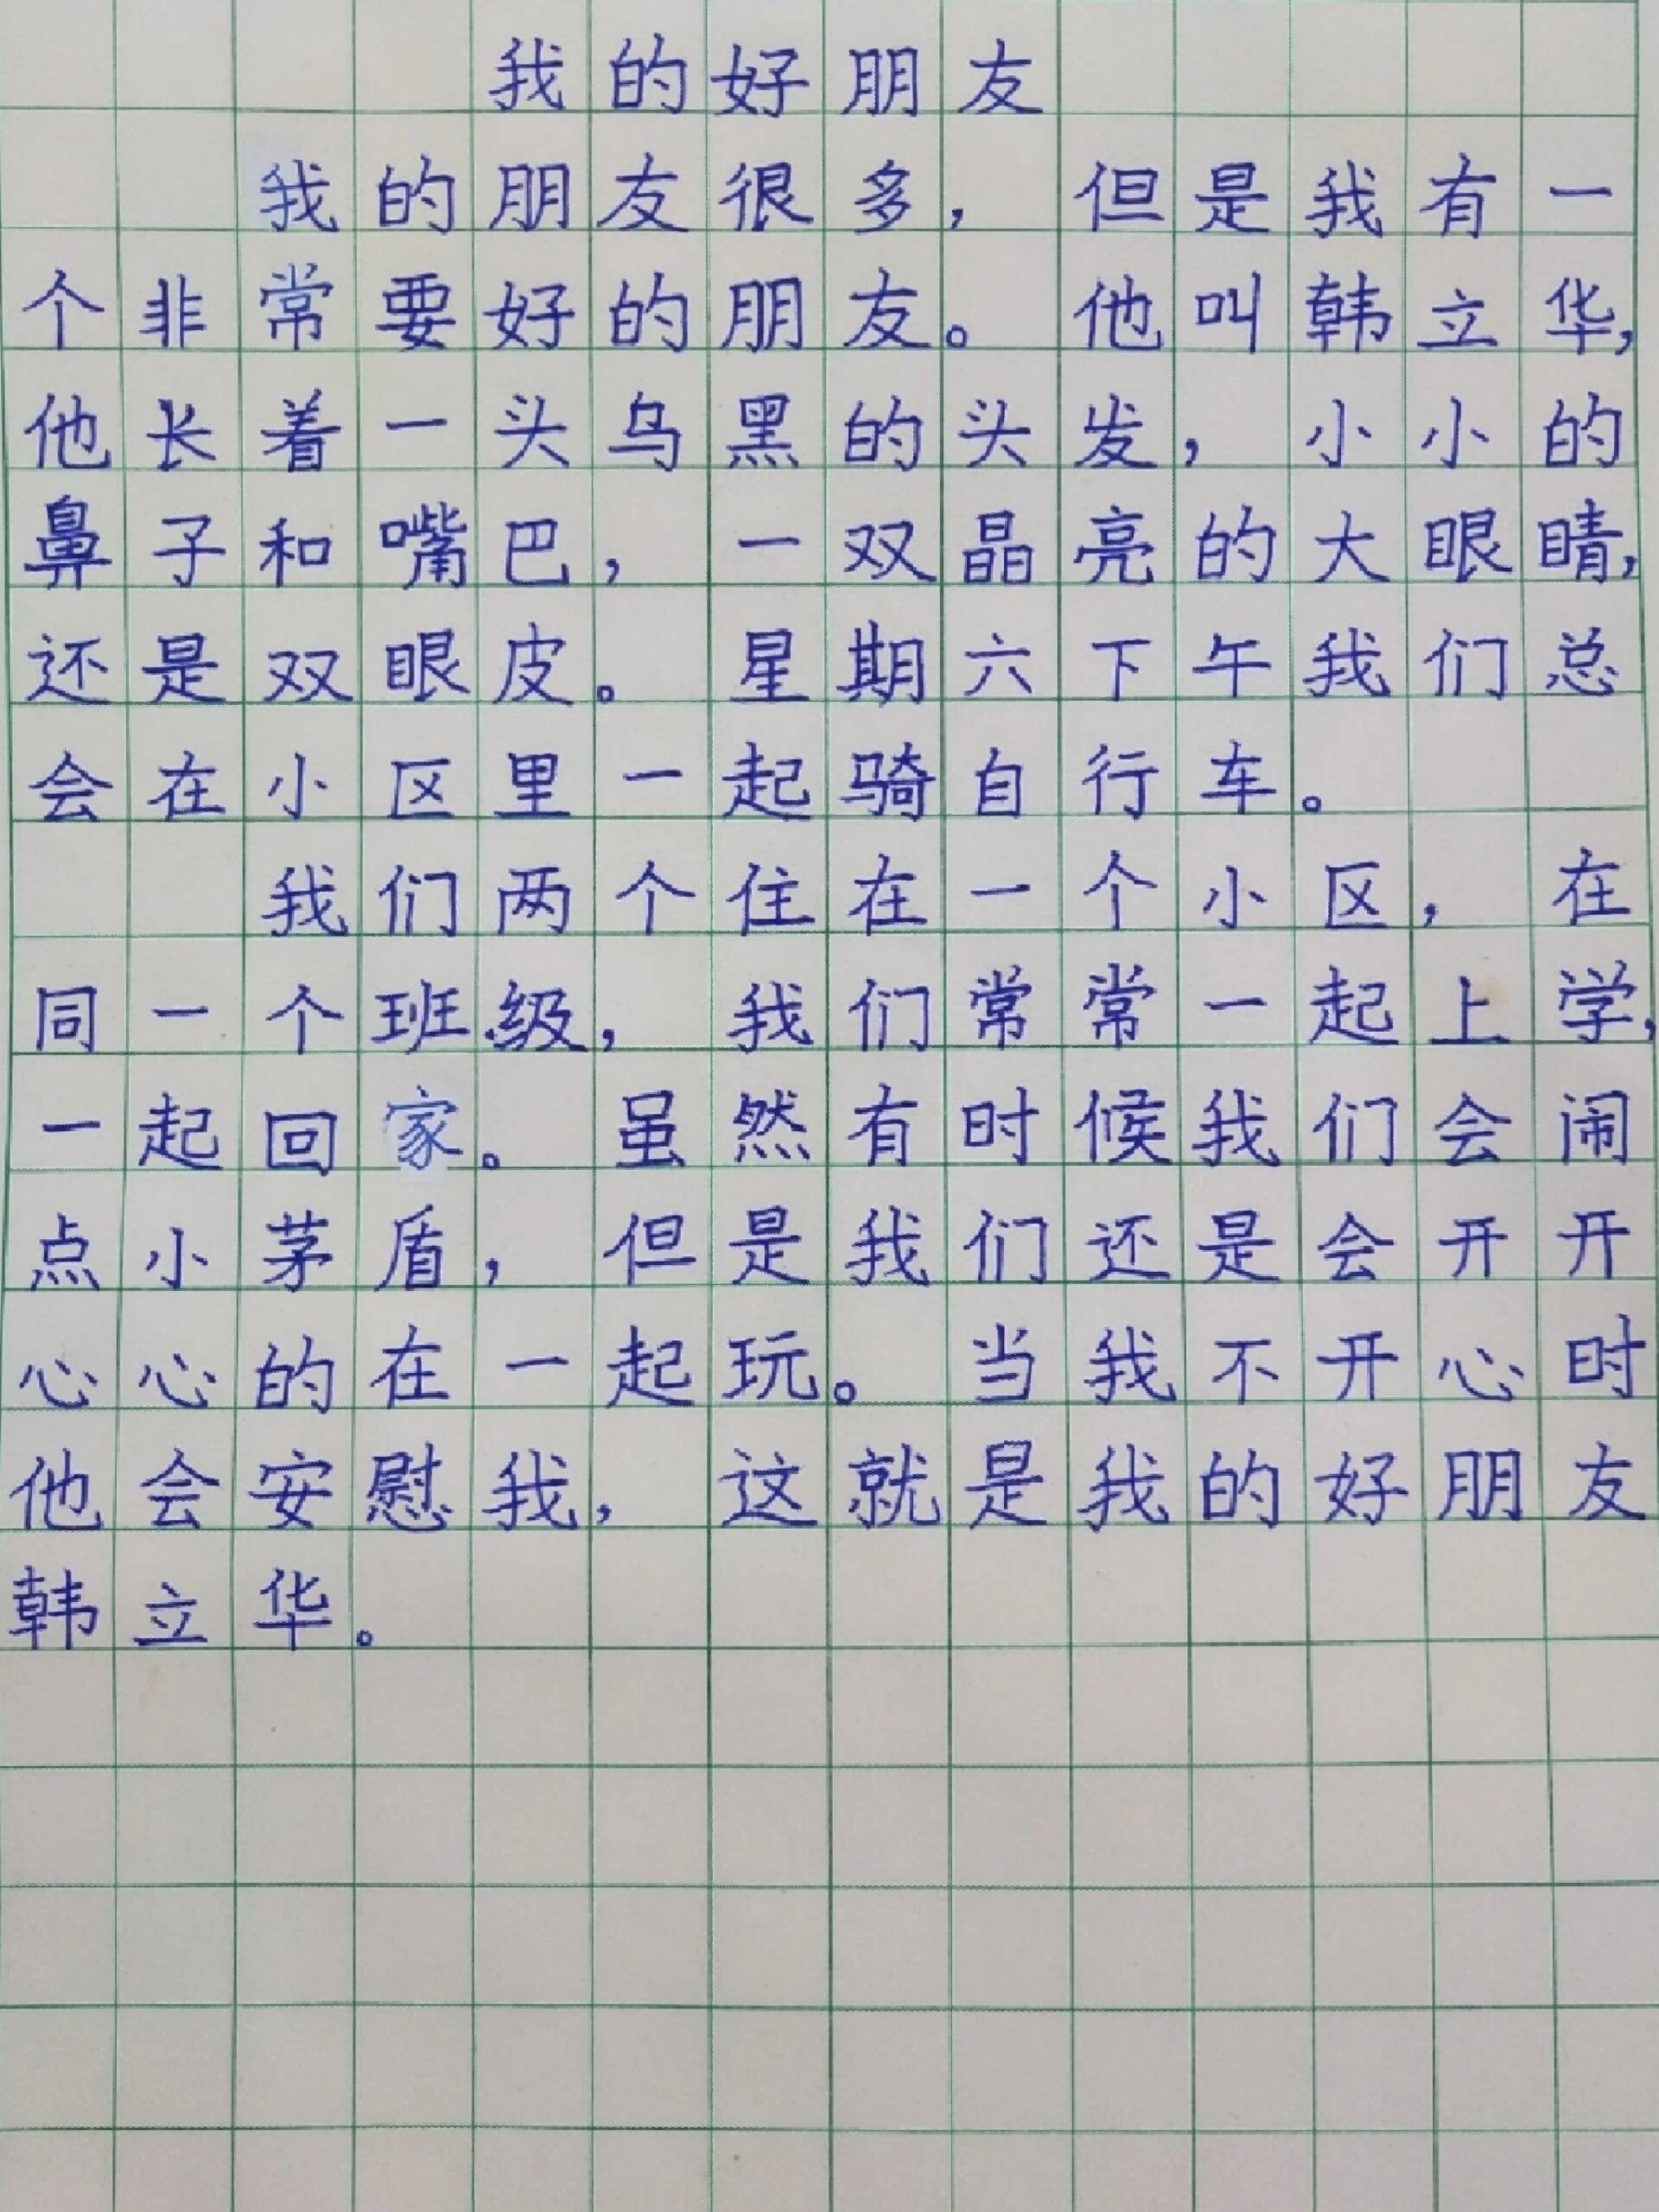 我的好朋友
我的朋友很多，但是我有一
个非常要好的朋友。他叫韩立华，
他长着一头乌黑的头发，小小的
鼻子和嘴巴，一双晶亮的大眼睛，
还是双眼皮。星期六下午我们总
会在小区里一起骑自行车。
我们两个住在一个小区，在
同一个班级，我们常常一起上学，
一起回家。虽然有时候我们会闹
点小茅盾，但是我们还是会开开
心心的在一起玩。当我不开心时
他会安慰我，这就是我的好朋友
韩立华。